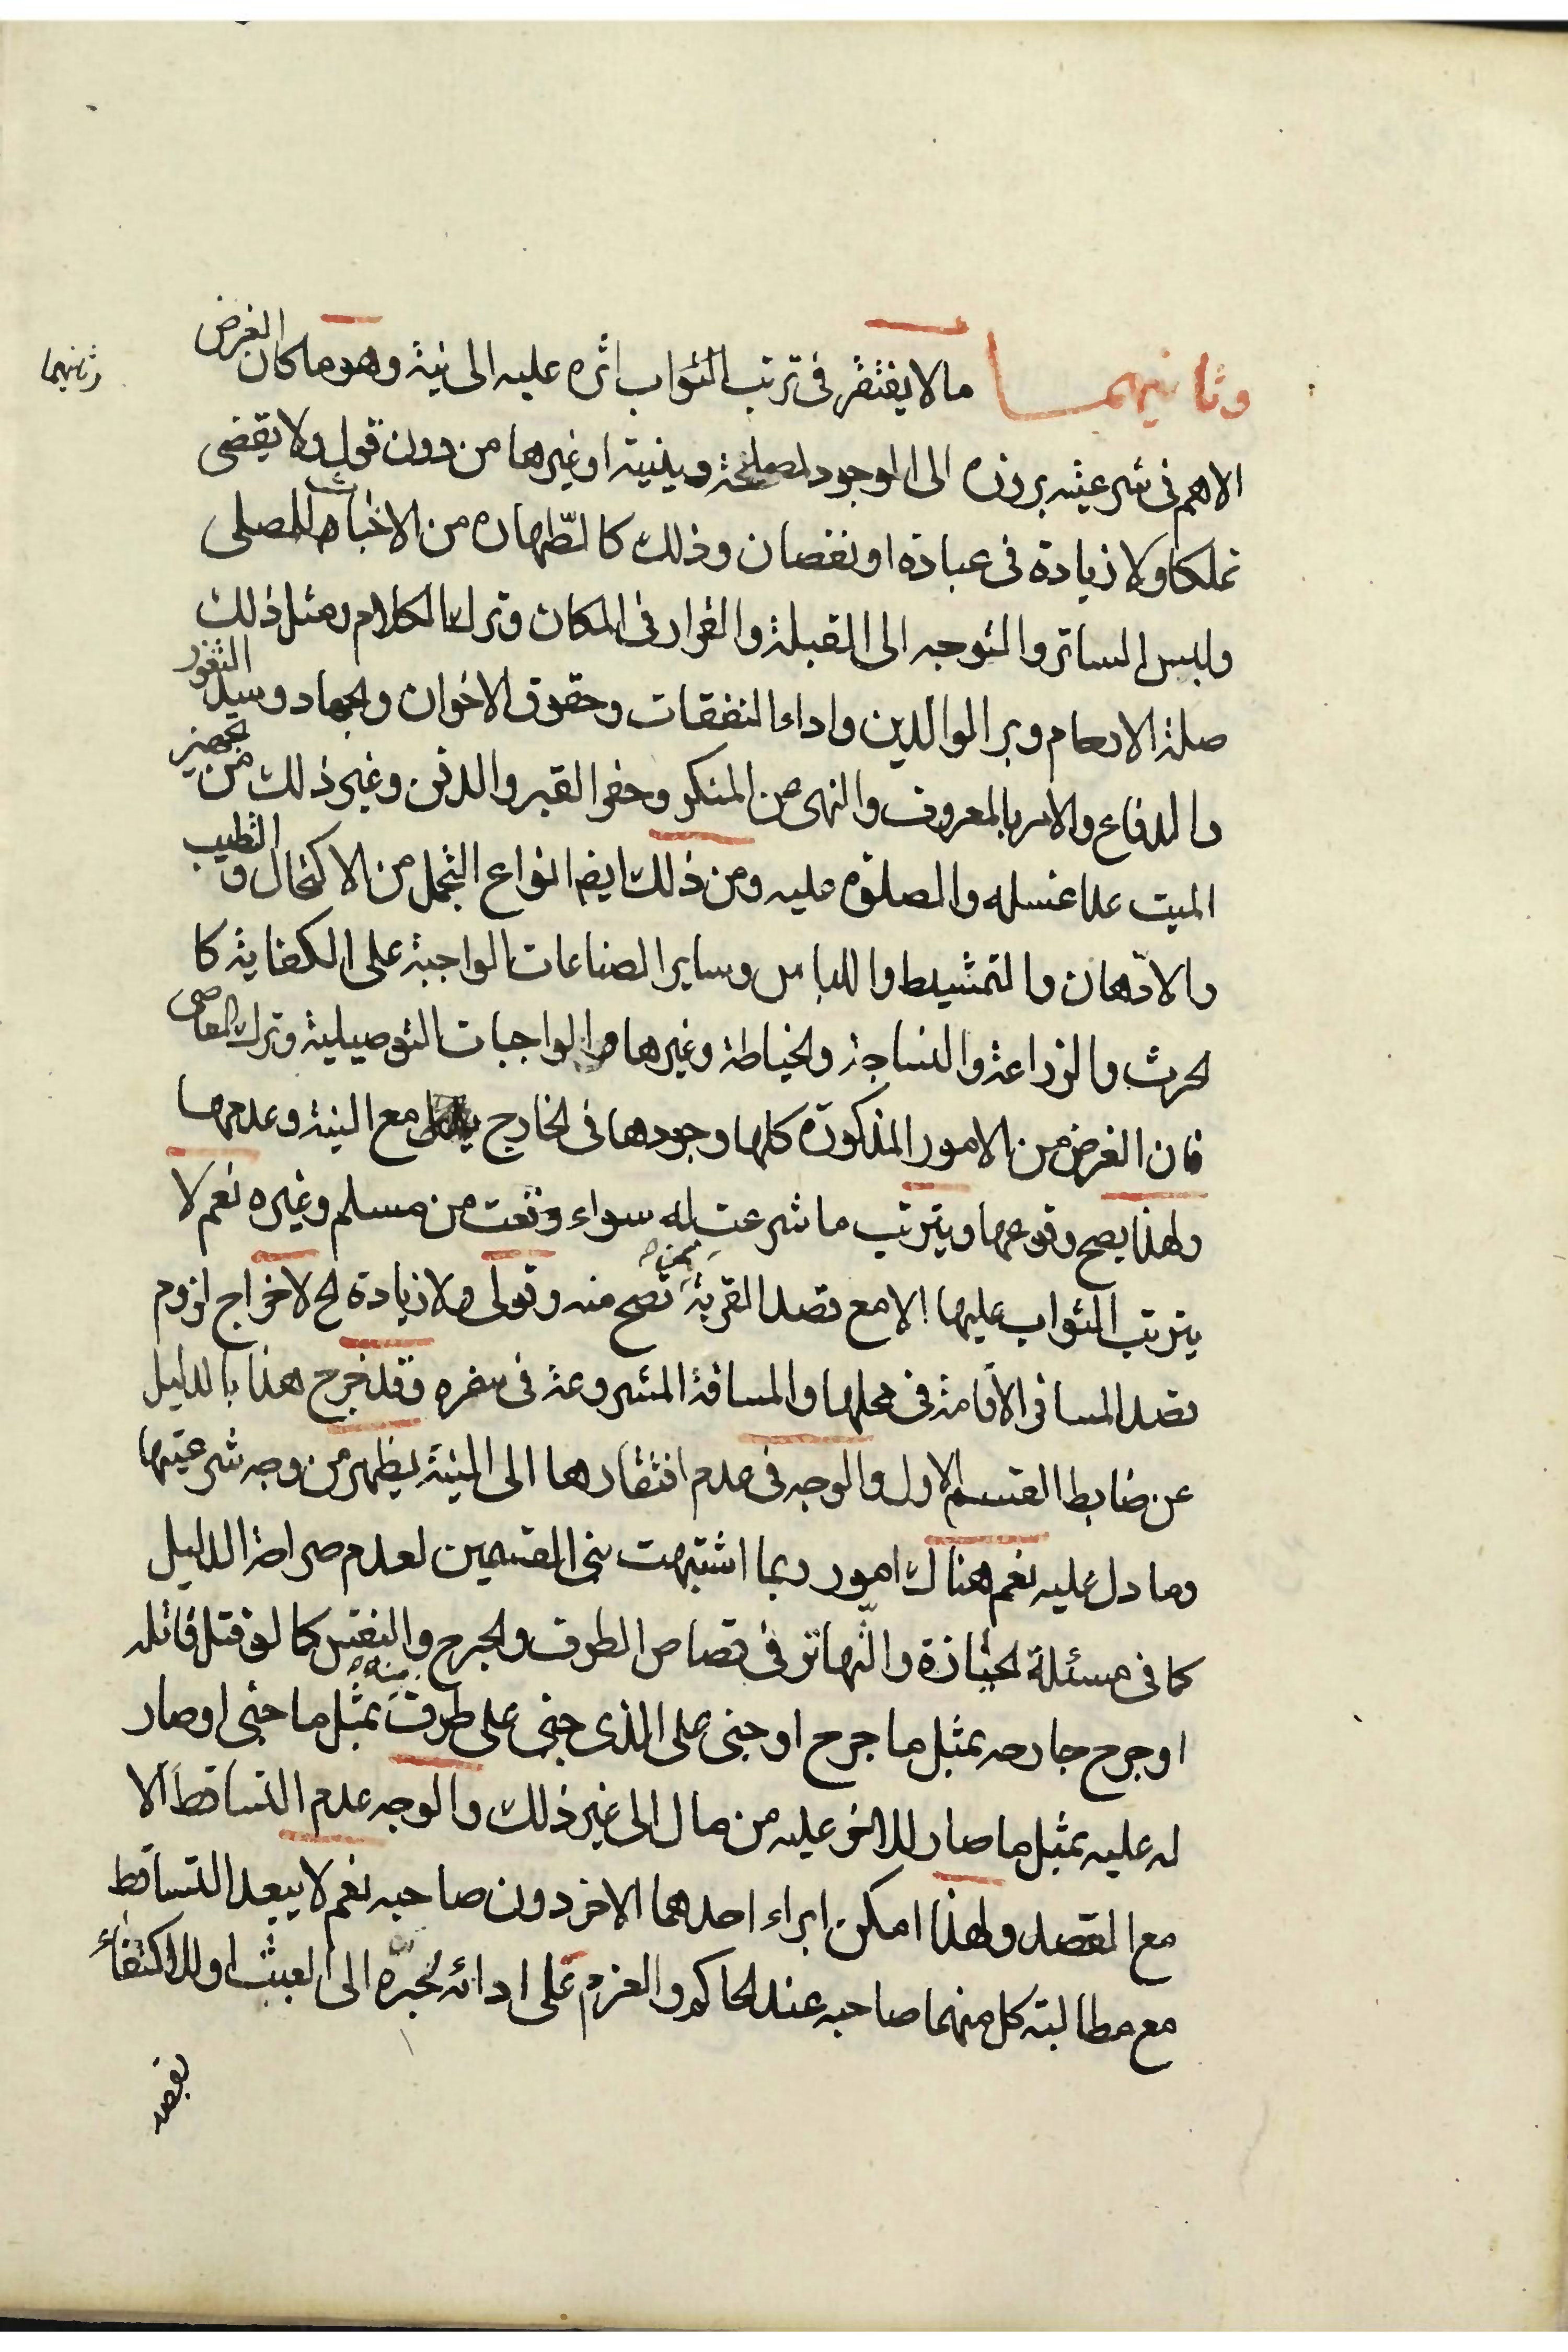 وثانيهما
وثانيهمـا ما لا يفتقر فى ترتب الثواب اثره عليه الى نية وهو ما كان الغرض
الاهم فى شرعيته بروزه الى الوجود لمصلحة دينية او غيرها من دون قول ولا يقضى
تملكا ولا زيادة فى عبادة او نقصان وذلك كالطّهارة من الاخباث للمصلى
ولبس الساتر والتوجه الى القبلة والقرار فى المكان وترك الكلام ومثل ذلك
صلة الارحام وبر الوالدين واداء النفقات وحقوق الاخوان والجهاد وسد الثغور
والدفاع والامر بالمعروف والنهى عن المنكر وحفر القبر والدفن وغير ذلك من تجهيز
الميت عدا غسله والصلوة عليه ومن ذلك ايضا انواع التجمل من الاكتحال والتطيب
والادّهان والتمشيط واللباس وساير الصناعات الواجبة على الكفاية كا
لحرث والزراعة والنساجة والخياطة وغيرها من الواجبات التوصيلية وترك المعاصى
فان الغرض من الامور المذكورة كلها وجودها فى الخارج مع النية وعدمها
ولهذا يصح وقوعها ويترتب ما شرعت له سواء وقعت من مسلم وغيره نعم لا
يترتب الثواب عليها الا مع قصد القربة ممن تصح منه وقولى ولا زيادة الخ لاخراج لزوم
قصد المسافر الاقامة فى محلها والمسافة المشروعة فى سفره وقد خرج هذا بالدليل
عن ضابط القسم الاول والوجه فى عدم افتقارها الى النية يظهر من وجه شرعيتها
وما دل عليه نعم هناك امور ربما اشتبهت بين القسمين لعدم صراحة الدليل
كما فى مسئلة الحيازة والتّهاتر فى قصاص الطرف والجرح والنفس كما لو قتل قاتله
او جرح جارحه بمثل ما جرح او جنى على الذى جنى على طرف منه بمثل ما جنى او صار
له عليه بمثل ما صار للاخر عليه من مال الى غير ذلك والوجه عدم التساقط الا
مع القصد ولهذا امكن ابراء احدهما الاخر دون صاحبه نعم لا يبعد التساقط
مع مطالبته كل منهما صاحبه عند الحاكم والعزم على ادائه لجره الى العبث او للاكتفاء
بقصد